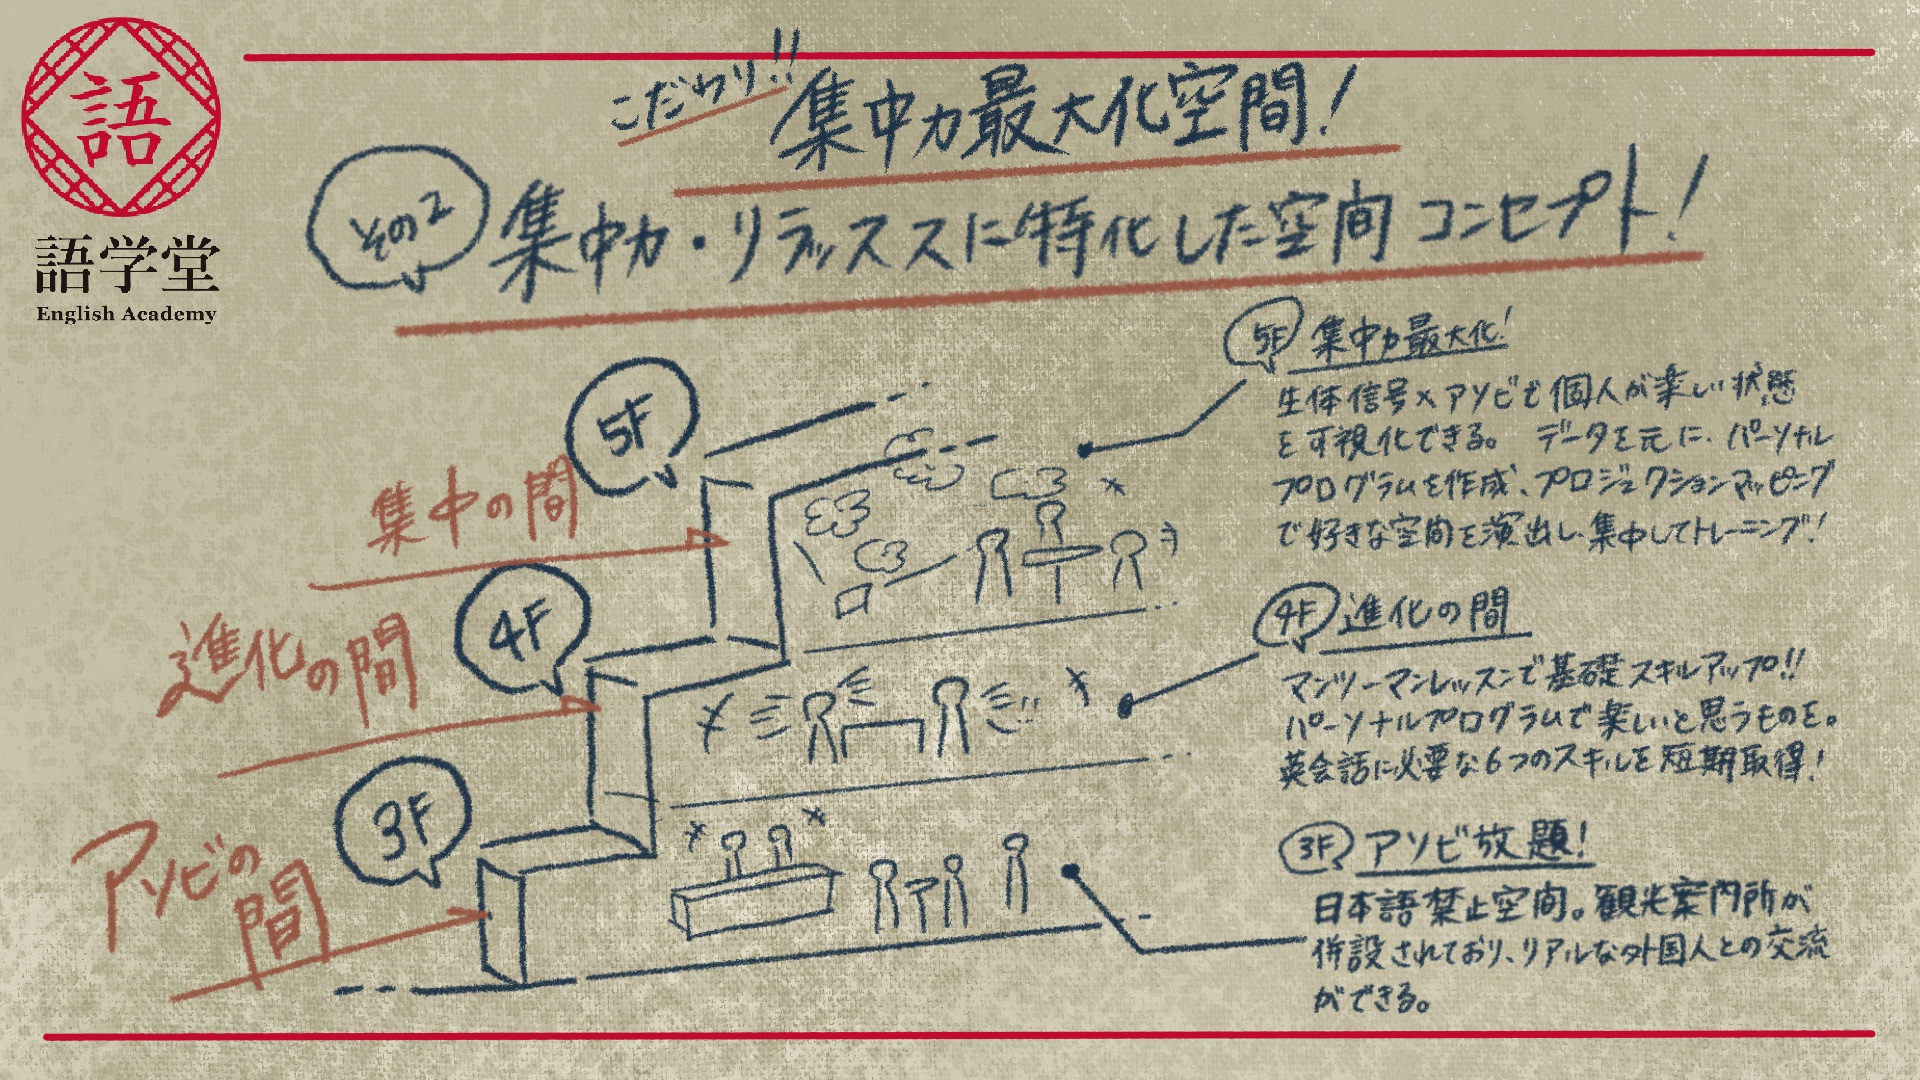 語
語学堂
English Academy
こだわり!! 集中力最大化空間!
その2 集中力・リラックスに特化した空間コンセプト!
5F
集中の間
4F
進化の間
3F
アソビの間
5F 集中力最大化!
生体信号×アソビで個人が楽しい状態
を可視化できる。 データを元に、パーソナル
プログラムを作成、プロジェクションマッピング
で好きな空間を演出し、集中してトレーニング!
4F 進化の間
マンツーマンレッスンで基礎スキルアップ!!
パーソナルプログラムで楽しいと思うものを。
英会話に必要な6つのスキルを短期取得!
3F アソビ放題!
日本語禁止空間。観光案内所が
併設されており、リアルな外国人との交流
ができる。